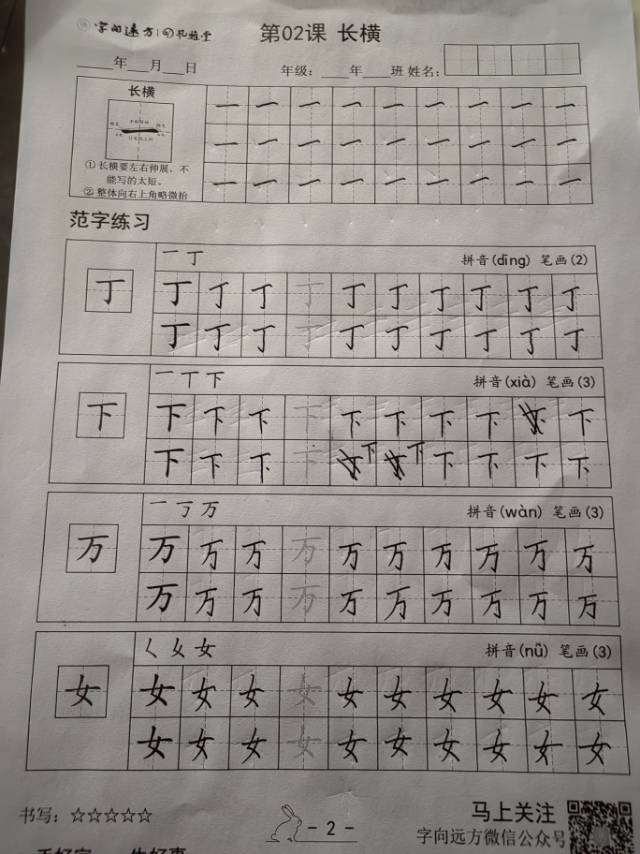 字向远方
第02课 长横
____年___月___日
年级：____年____班 姓名：
长横
一 一 一 一 一 一 一 一 一
一 一 一 一 一 一 一 一 一
一 一 一 一 一 一 一 一 一
①长横要左右伸展，不
能写的太短。
②整体向右上角略微抬
范字练习
一 丁
拼音(dīng) 笔画(2)
丁
丁 丁 丁 丁 丁 丁 丁 丁 丁 丁
丁 丁 丁 丁 丁 丁 丁 丁 丁 丁
一 丅 下
拼音(xià) 笔画(3)
下
下 下 下 下 下 下 下 下 下
下 下 下 下 下 下 下 下 下 下
一 丆 万
拼音(wàn) 笔画(3)
万
万 万 万 万 万 万 万 万 万 万
万 万 万 万 万 万 万 万 万 万
𡿨 女 女
拼音(nǚ) 笔画(3)
女
女 女 女 女 女 女 女 女 女 女
女 女 女 女 女 女 女 女 女 女
书写：☆☆☆☆☆
- 2 -
马上关注
字向远方微信公众号